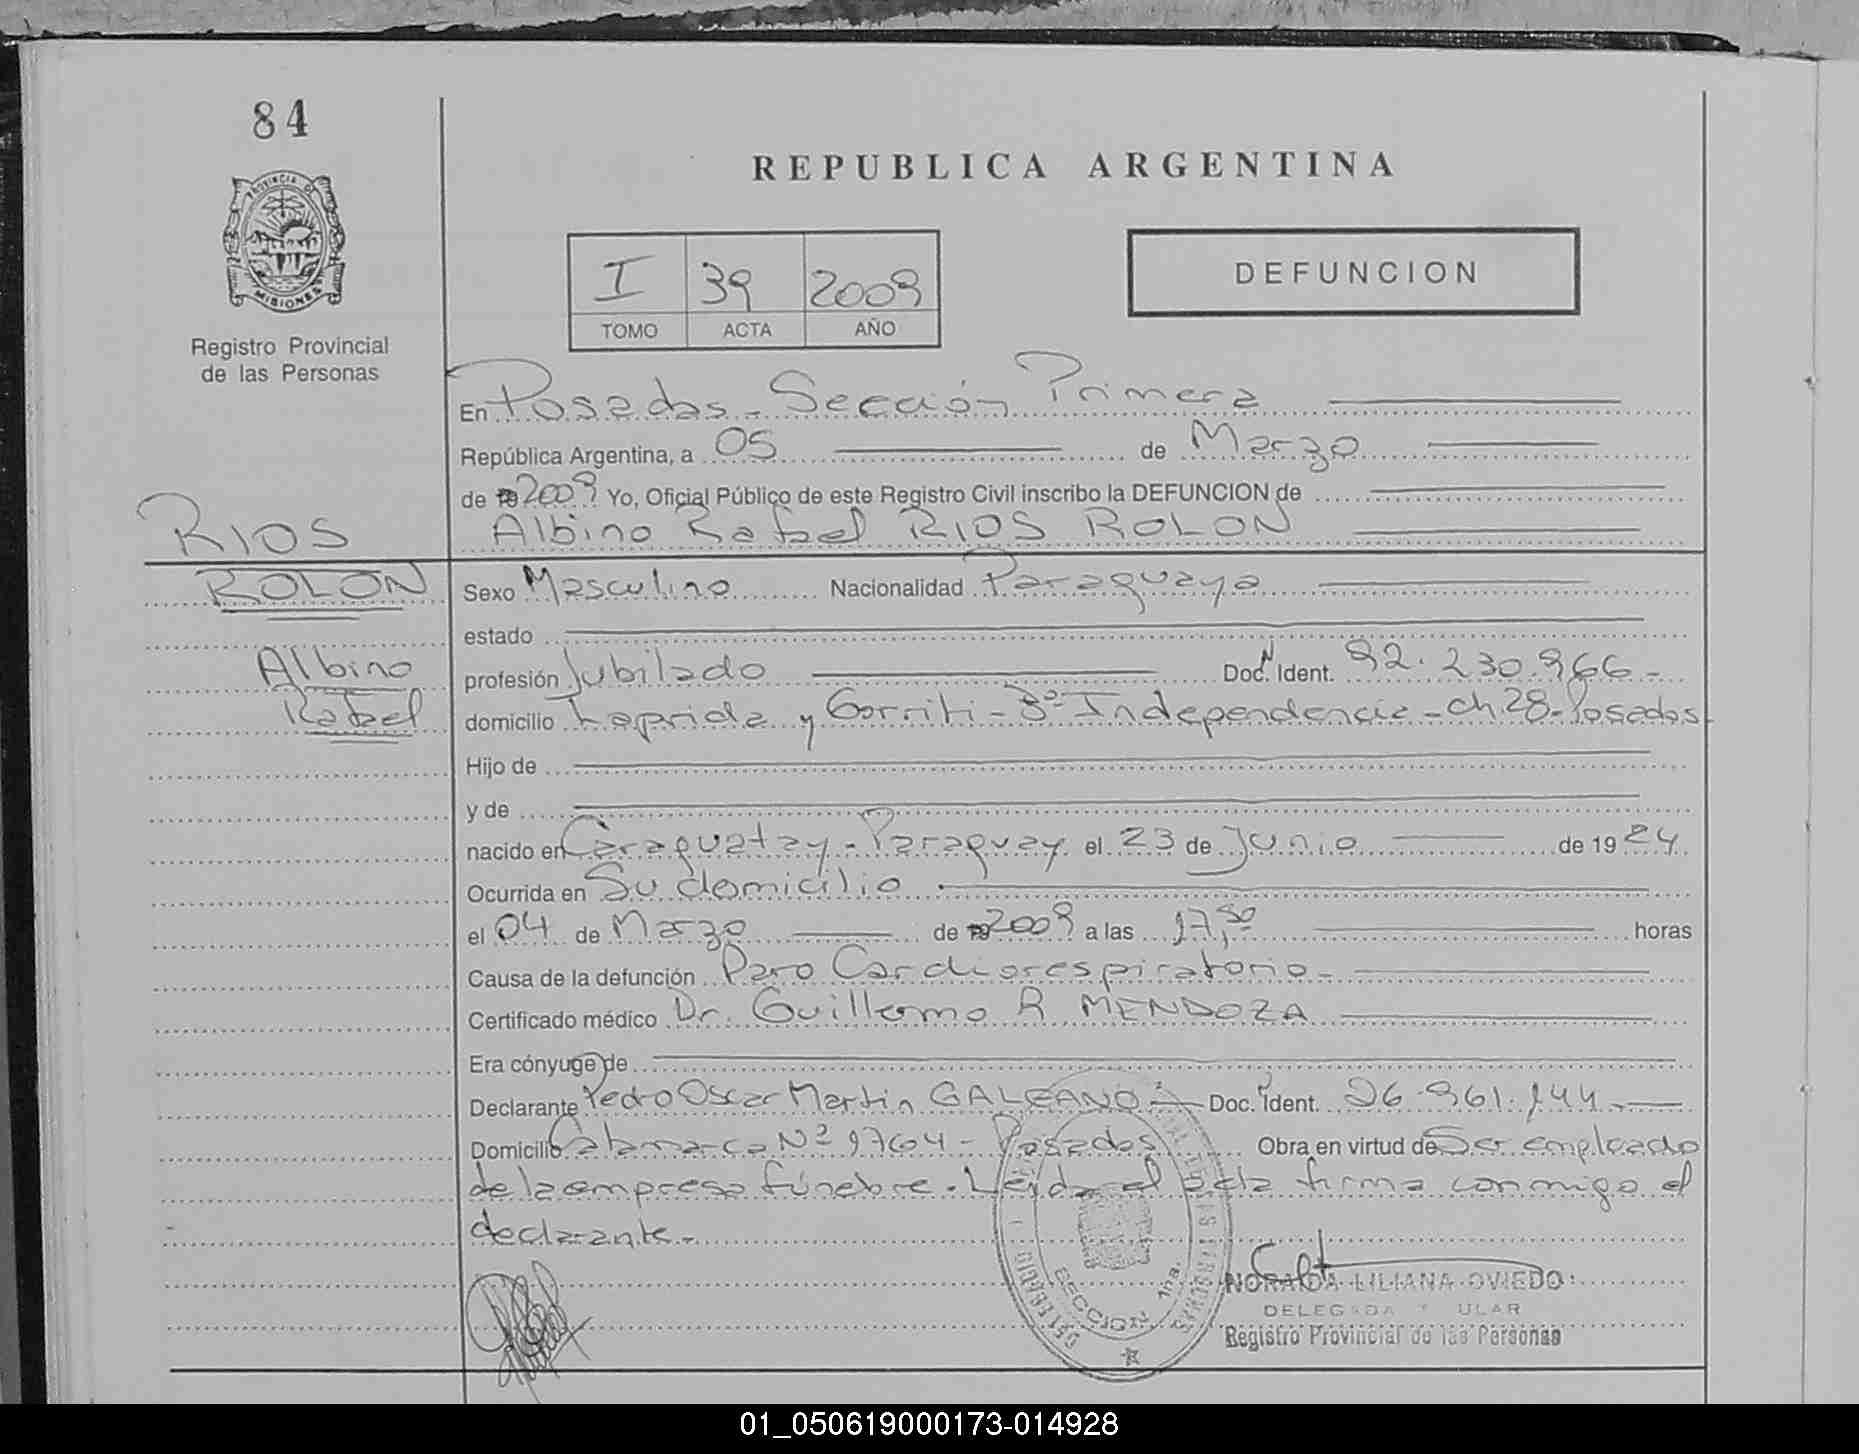 84
PROVINCIA DE
MISIONES
Registro Provincial
de las Personas
REPUBLICA ARGENTINA
I 39 2009
TOMO ACTA AÑO
DEFUNCION
En Posadas - Sección Primera
República Argentina, a 05 de Marzo
de 2009 Yo, Oficial Público de este Registro Civil inscribo la DEFUNCION de
Albino Rafael RIOS ROLON
RIOS
ROLON
Albino
Rafael
Sexo Masculino Nacionalidad Paraguaya
estado
profesión Jubilado Doc. N Ident. 92.230.966-
domicilio Laprida y Gorriti - Bº Independencia - ch. 28 - Posadas
Hijo de
y de
nacido en Caraguatay - Paraguay el 23 de Junio de 1924
Ocurrida en Su domicilio
el 04 de Marzo de 2009 a las 17,30 horas
Causa de la defunción Paro Cardiorespiratorio-
Certificado médico Dr. Guillermo R MENDOZA
Era cónyuge de
Declarante Pedro Oscar Martin GALEANO Doc. Ident. 26.961.144
Domicilio Catamarca Nº 1764 - Posadas Obra en virtud de Ser empleado
de la empresa fúnebre. Leyda el acta firma conmigo el
declarante.
SECCION 1RA.
NORALDA LILIANA OVIEDO
DELEGADA
Registro Provincial de las Personas
01_050619000173-014928